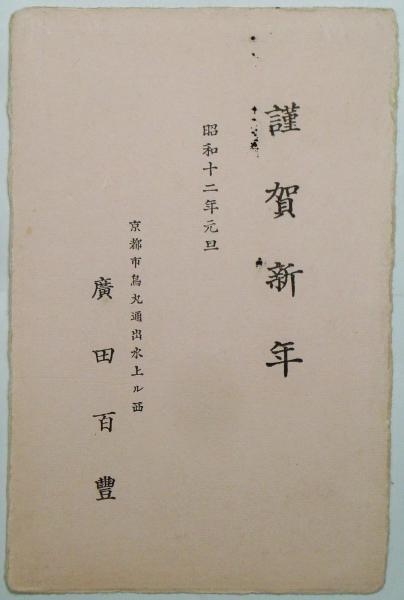 謹賀新年
昭和十二年元旦
京都市烏丸通出水上ル西
廣田百豊